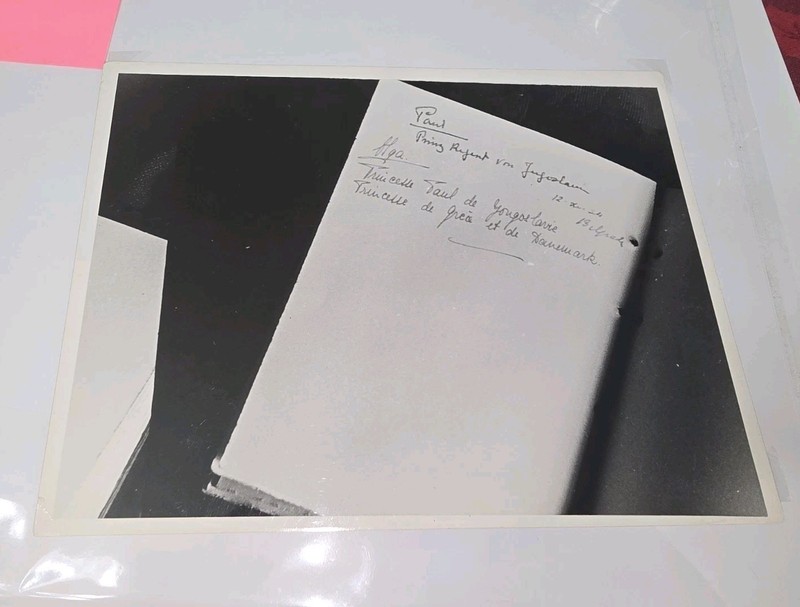 Paul
Prinz Regent von Jugoslawien
Olga
Princesse Paul de Yougoslavie
Princesse de Grèce et de Danemark.